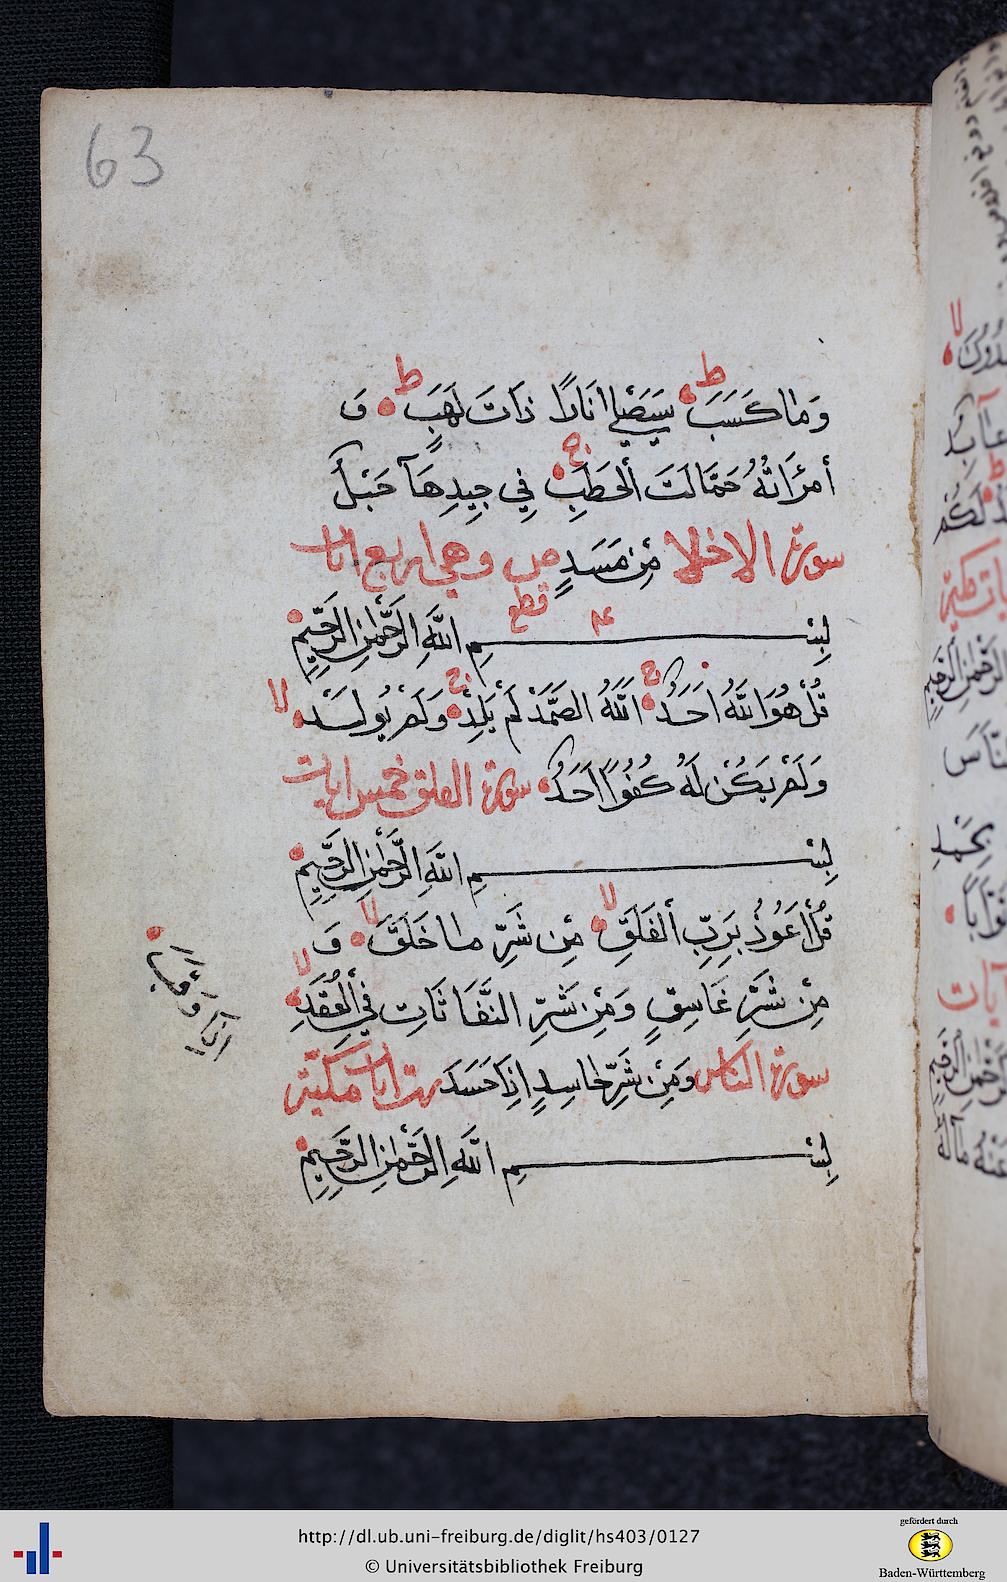 63
وَمَا كَسَبَ ط سَيَصْلٰى نَارًا ذَاتَ لَهَبٍ ط وَ
اٰمْرَاَتُهُ حَمَّالَتَ الْحَطَبِ ج فِي جِيدِهَا حَبْلٌ
سورة الاخلا مِنْ مَسَدٍ ص وهي اربع ايات
قطع
بِسْمِ اللّٰهِ الرَّحْمٰنِ الرَّحِيمِ
قُلْ هُوَ اللّٰهُ اَحَدٌ ج اَللّٰهُ الصَّمَدْ لَمْ يَلِدْ ج وَلَمْ يُولَدْ لا
وَلَمْ يَكُنْ لَهُ كُفُوًا اَحَدٌ سورة الفلق خمس ايات
بِسْمِ اللّٰهِ الرَّحْمٰنِ الرَّحِيمِ
قُلْ اَعُوذُ بِرَبِّ الْفَلَقِ لا مِنْ شَرِّ مَا خَلَقَ لا وَ
مِنْ شَرِّ غَاسِقٍ وَمِنْ شَرِّ النَّفَّاثَاتِ فِي الْعُقَدِ لا
اِذَا وَقَبَ
سورة الناس وَمِنْ شَرِّ حَاسِدٍ اِذَا حَسَدَ ست ايات مكية
بِسْمِ اللّٰهِ الرَّحْمٰنِ الرَّحِيمِ
http://dl.ub.uni-freiburg.de/diglit/hs403/0127
© Universitätsbibliothek Freiburg
gefördert durch
Baden-Württemberg